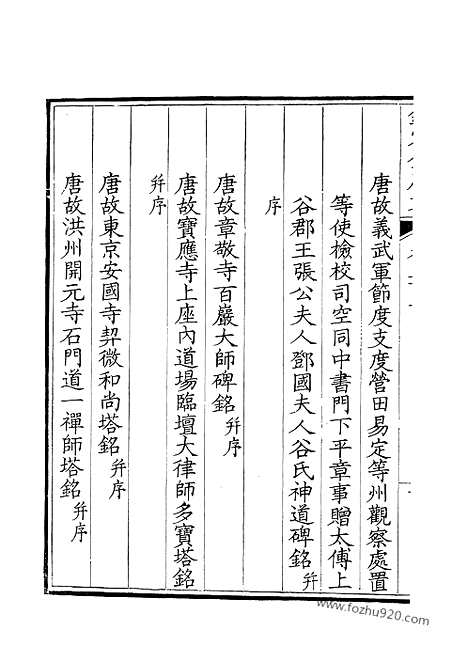 唐故義武軍節度支度營田易定等州觀察處置
等使檢校司空同中書門下平章事贈太傅上
谷郡王張公夫人鄧國夫人谷氏神道碑銘并
序
唐故章敬寺百巖大師碑銘并序
唐故寶應寺上座內道場臨壇大律師多寶塔銘
并序
唐故東京安國寺契微和尚塔銘并序
唐故洪州開元寺石門道一禪師塔銘并序
www.fozhu920.com